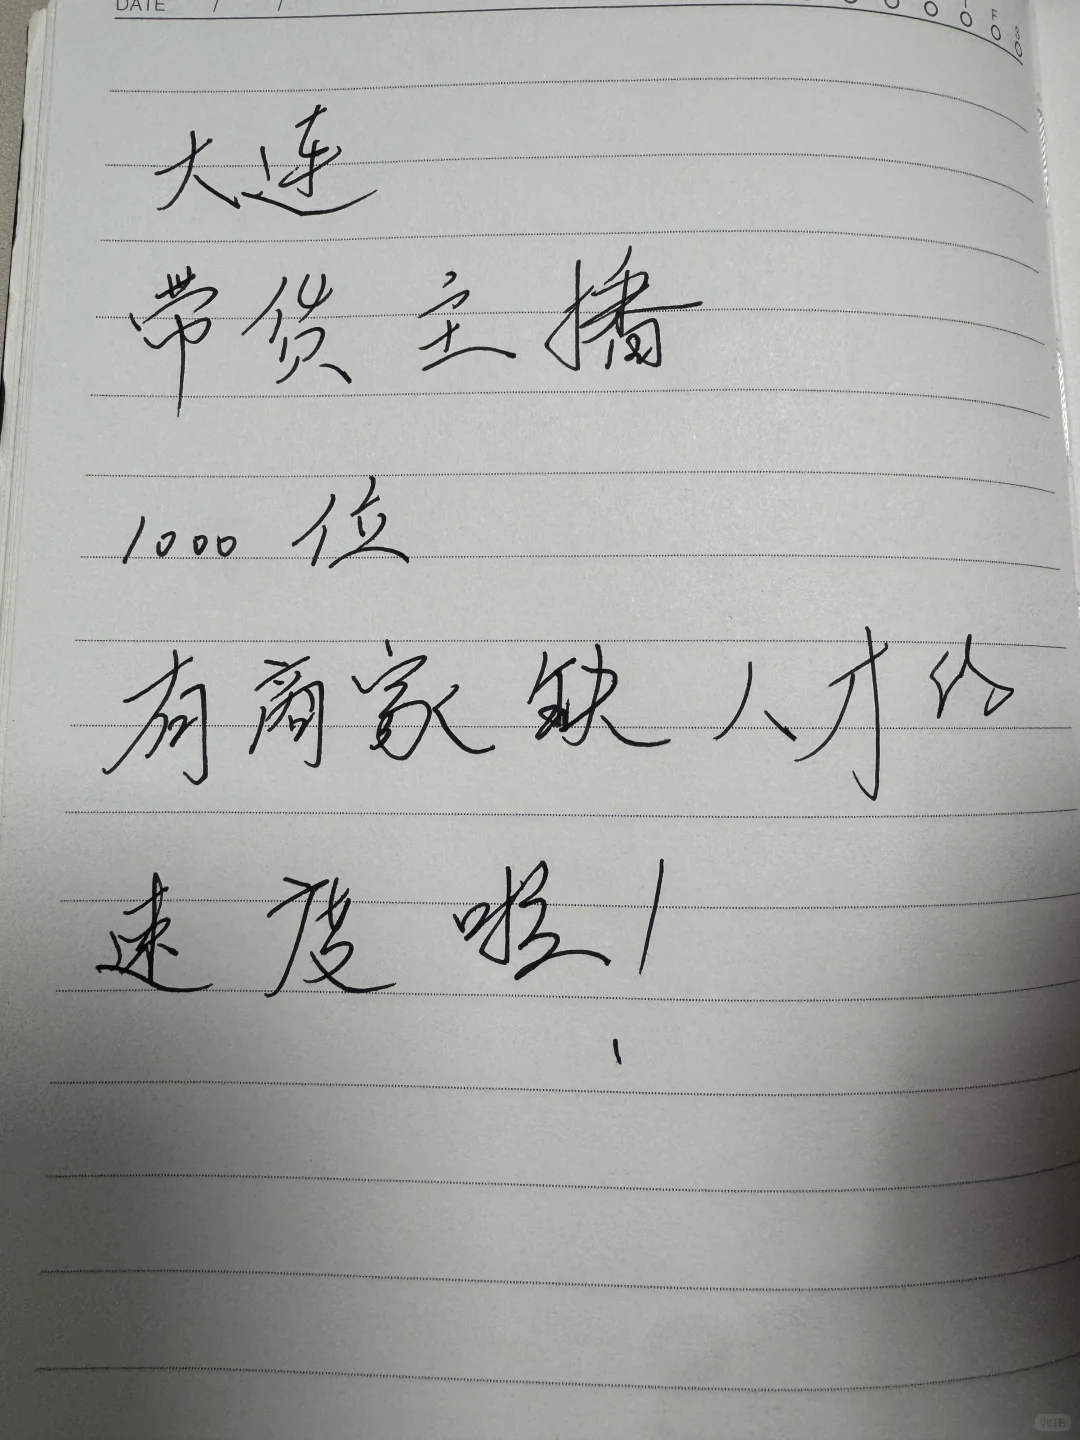 DATE / /
大连
带货主播
1000位
有商家缺人才的
速度啦!
小红书